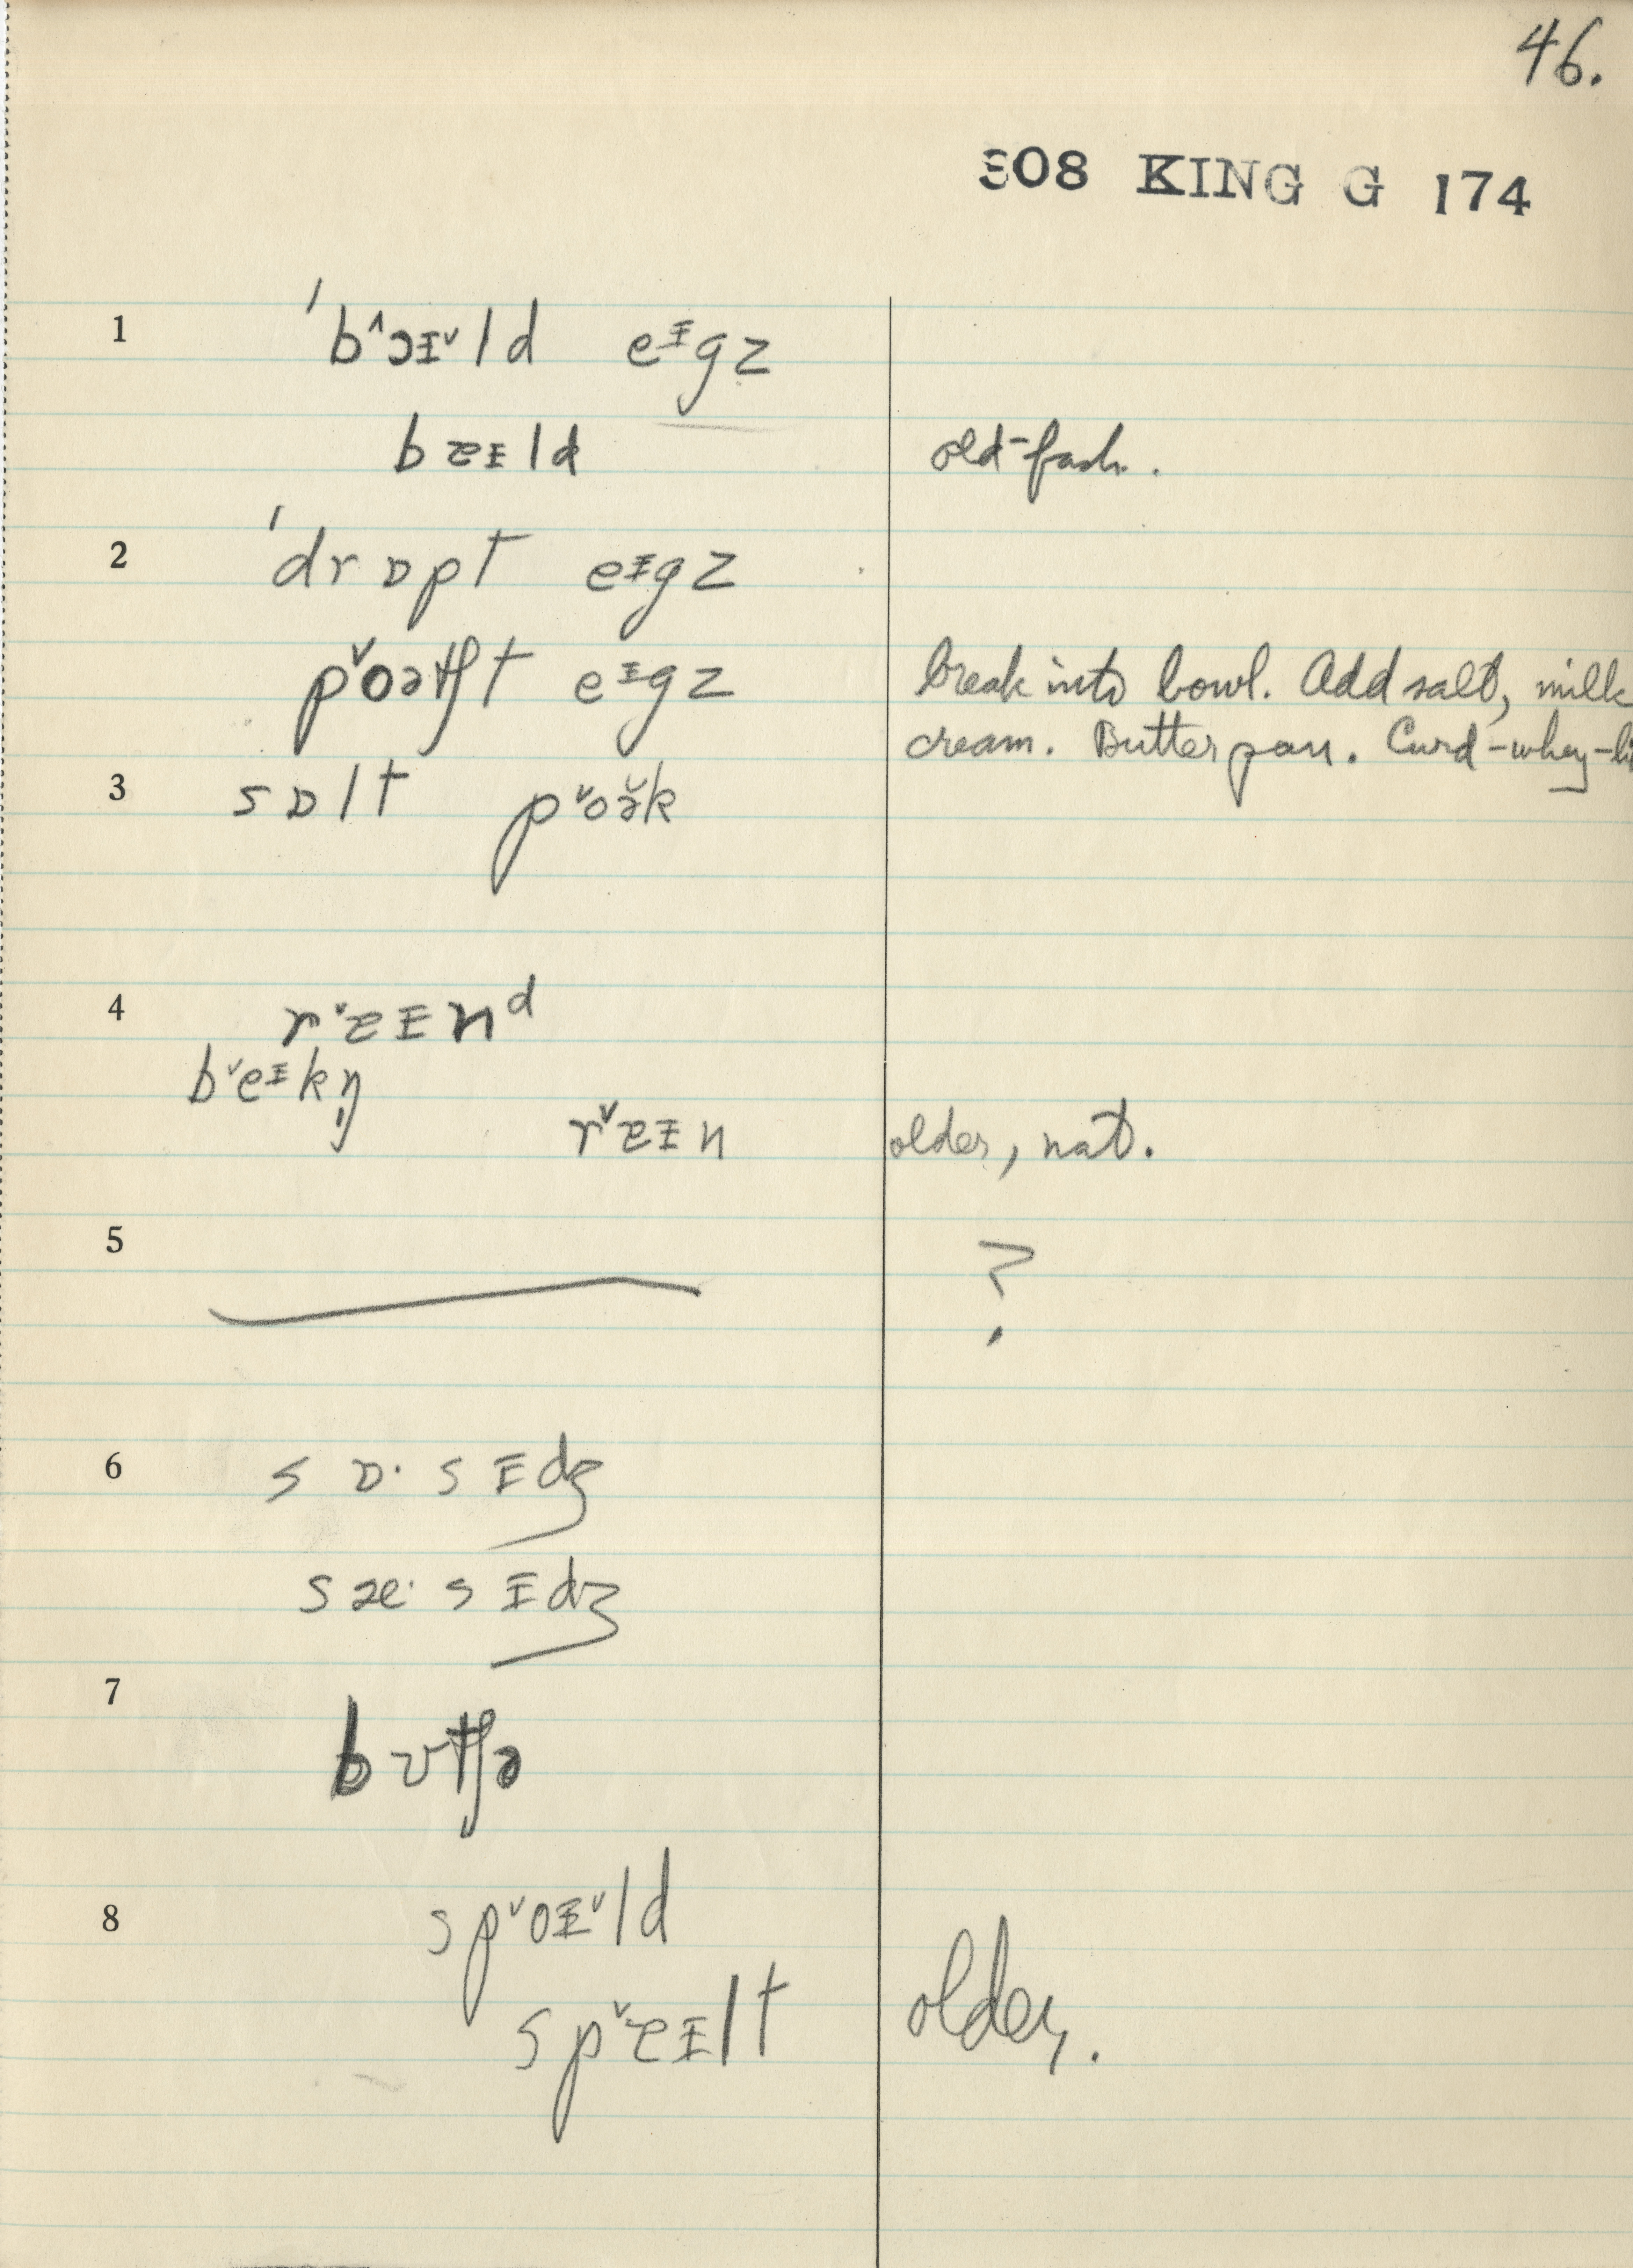 46.
308 KING G 174
1 ˈb˄ɔɪ˅ld eᵻgz
bɐᵻld old-fash.
2 ˈdrɒpt eᵻgz
p˅oətʃt eᵻgz break into bowl. Add salt, milk
cream. Butter pan. Curd-whey-li
3 sɒlt p˅oə̆k
4 r˅ɐᵻnᵈ
b˅eᵻkŋ̩
r˅ɐᵻn older, nat.
5 ?
6 sɒ·sᵻdʒ
sæ·sᵻdʒ
7 bʊtʃə
8 sp˅oᵻ˅ld
sp˅ɐᵻlt older.